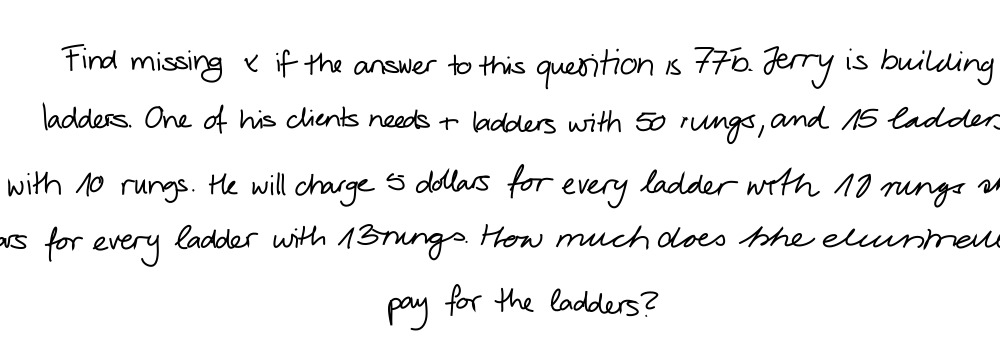 Find missing x if the answer to this question is 775. Jerry is building
ladders. One of his clients needs + ladders with 50 rungs, and 15 ladders
with 10 rungs. He will charge 5 dollars for every ladder with 10 rungs
for every ladder with 13 rungs. How much does the
pay for the ladders?